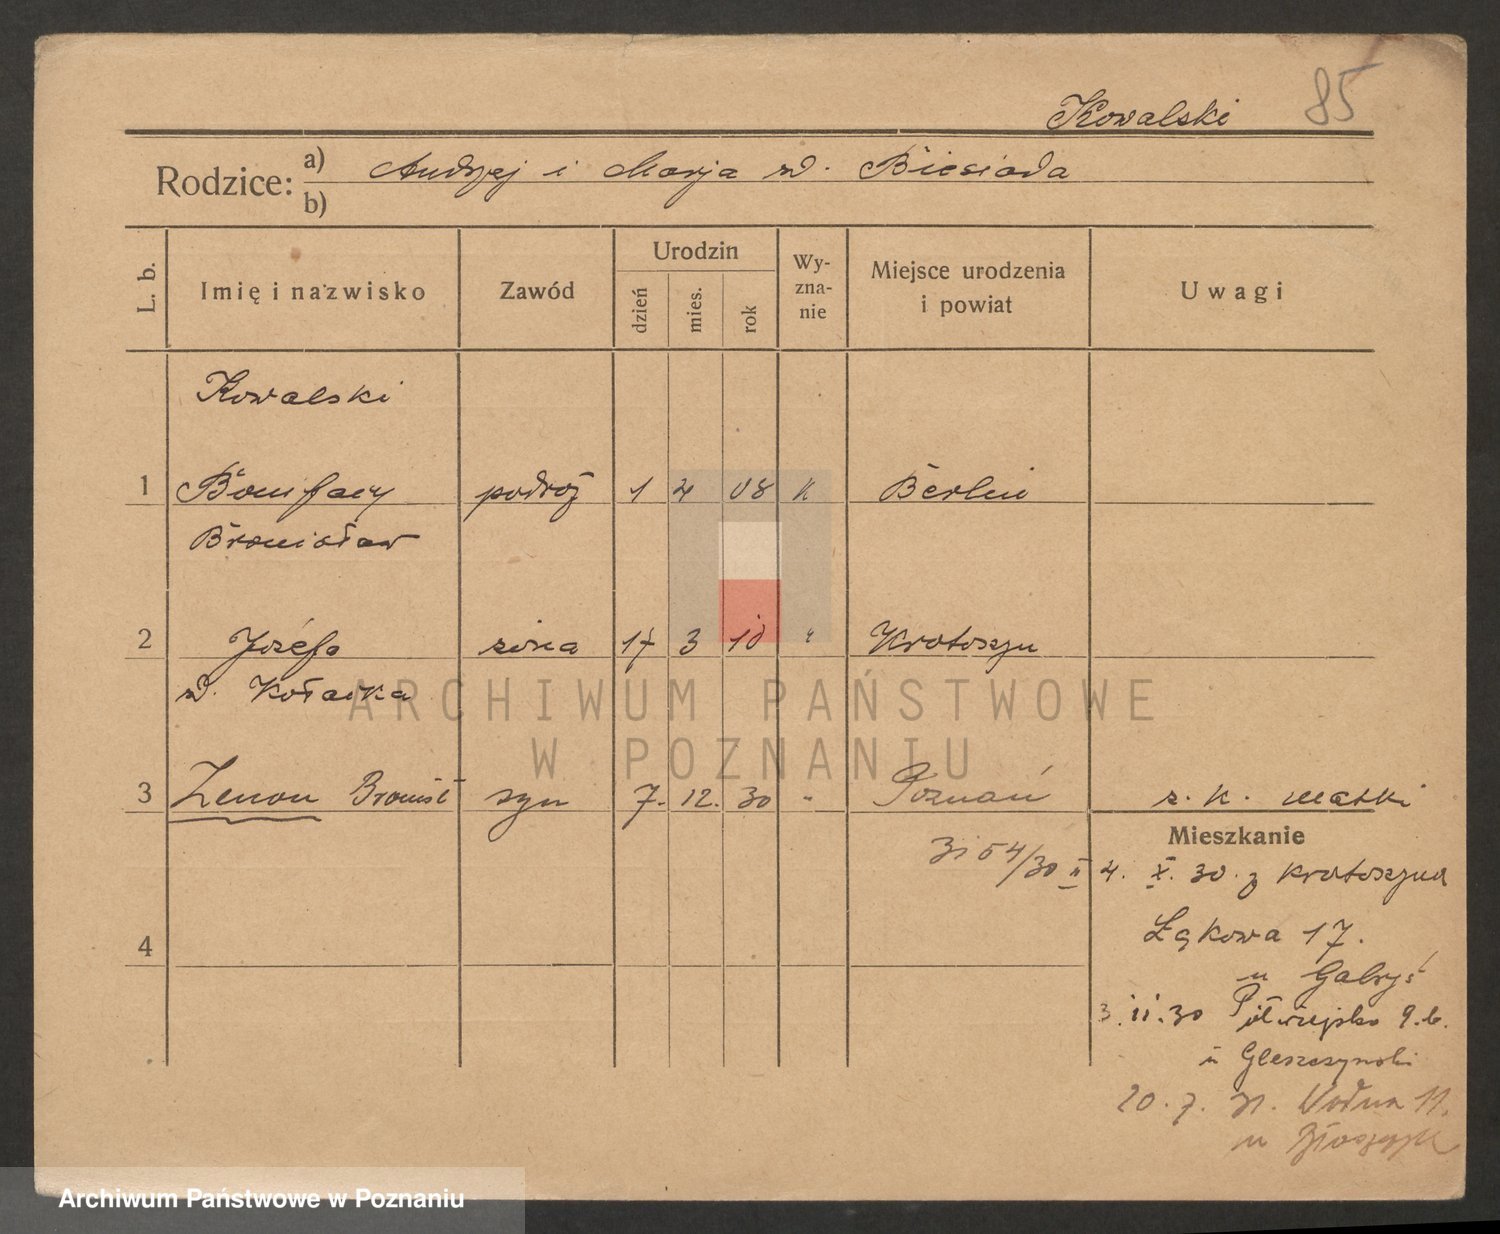 Kowalski 85
Rodzice: a) Andrzej i Marja zd. Biesiada
b)
L. b. Imię i nazwisko Zawód Urodzin dzień mies. rok Wyznanie Miejsce urodzenia i powiat Uwagi
Kowalski
1 Bonifacy podróż 1 4 08 K Berlin
Bronisław
2 Józefa żona 17 3 10 " Krotoszyn
zd. Kołacka
3 Zenon Bronisł syn 7. 12. 30 " Poznań z. k. matki
Mieszkanie
54/30 II 4. X. 30. z Krotoszyna
4
Łąkowa 17.
u Gabryś
3.11.30 Półwiejska 9.b.
u Gleszczynski
20. 7. 31. Wodna 11.
u
ARCHIWUM PAŃSTWOWE
W POZNANIU
Archiwum Państwowe w Poznaniu